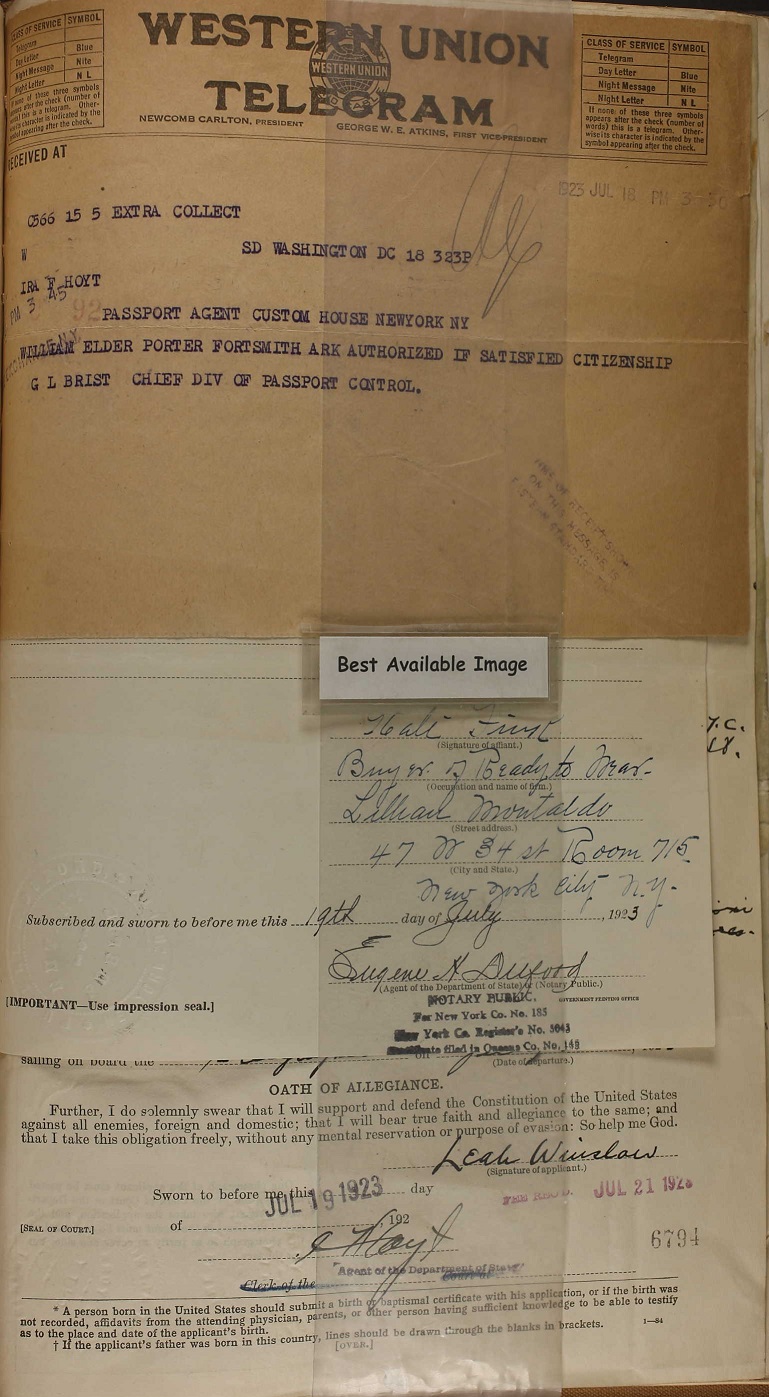 CLASS OF SERVICE SYMBOL
Telegram
Day Letter Blue
Night Message Nite
Night Letter N L
If none of these three symbols
appears after the check (number of
words) this is a telegram. Other-
wise its character is indicated by the
symbol appearing after the check.
WESTERN UNION
WESTERN UNION
TELEGRAM
NEWCOMB CARLTON, PRESIDENT GEORGE W. E. ATKINS, FIRST VICE-PRESIDENT
CLASS OF SERVICE SYMBOL
Telegram
Day Letter Blue
Night Message Nite
Night Letter N L
If none of these three symbols
appears after the check (number of
words) this is a telegram. Other-
wise its character is indicated by the
symbol appearing after the check.
RECEIVED AT
1923 JUL 18 PM 3
C566 15 5 EXTRA COLLECT
W SD WASHINGTON DC 18 323P
IRA F HOYT
PM 3 45
92
PASSPORT AGENT CUSTOM HOUSE NEWYORK NY
WILLIAM ELDER PORTER FORTSMITH ARK AUTHORIZED IF SATISFIED CITIZENSHIP
G L BRIST CHIEF DIV OF PASSPORT CONTROL.
Best Available Image
(Signature of affiant.)
Buyer of Ready to Wear-
(Occupation and name of firm.)
(Street address.)
47 W 34 st Room 715
(City and State.)
New York City N.Y.
Subscribed and sworn to before me this 19th day of July, 1923
Eugene
(Agent of the Department of State) or (Notary Public.)
[IMPORTANT—Use impression seal.]
NOTARY PUBLIC.
GOVERNMENT PRINTING OFFICE
For New York Co. No. 185
New York Co. Register's No. 5043
Certificate filed in Queens Co. No. 149
sailing on board the
(Date of departure.)
OATH OF ALLEGIANCE.
Further, I do solemnly swear that I will support and defend the Constitution of the United States
against all enemies, foreign and domestic; that I will bear true faith and allegiance to the same; and
that I take this obligation freely, without any mental reservation or purpose of evasion: So help me God.
Leah Winslow
(Signature of applicant.)
Sworn to before me this JUL 19 1923 day
FEE REC'D. JUL 21 1923
[SEAL OF COURT.]
of 192
Hoyt
6794
Agent of the Department of State
Clerk of the Court at
* A person born in the United States should submit a birth or baptismal certificate with his application, or if the birth was
not recorded, affidavits from the attending physician, parents, or other person having sufficient knowledge to be able to testify
as to the place and date of the applicant's birth.
† If the applicant's father was born in this country, lines should be drawn through the blanks in brackets. 1—84
[OVER.]